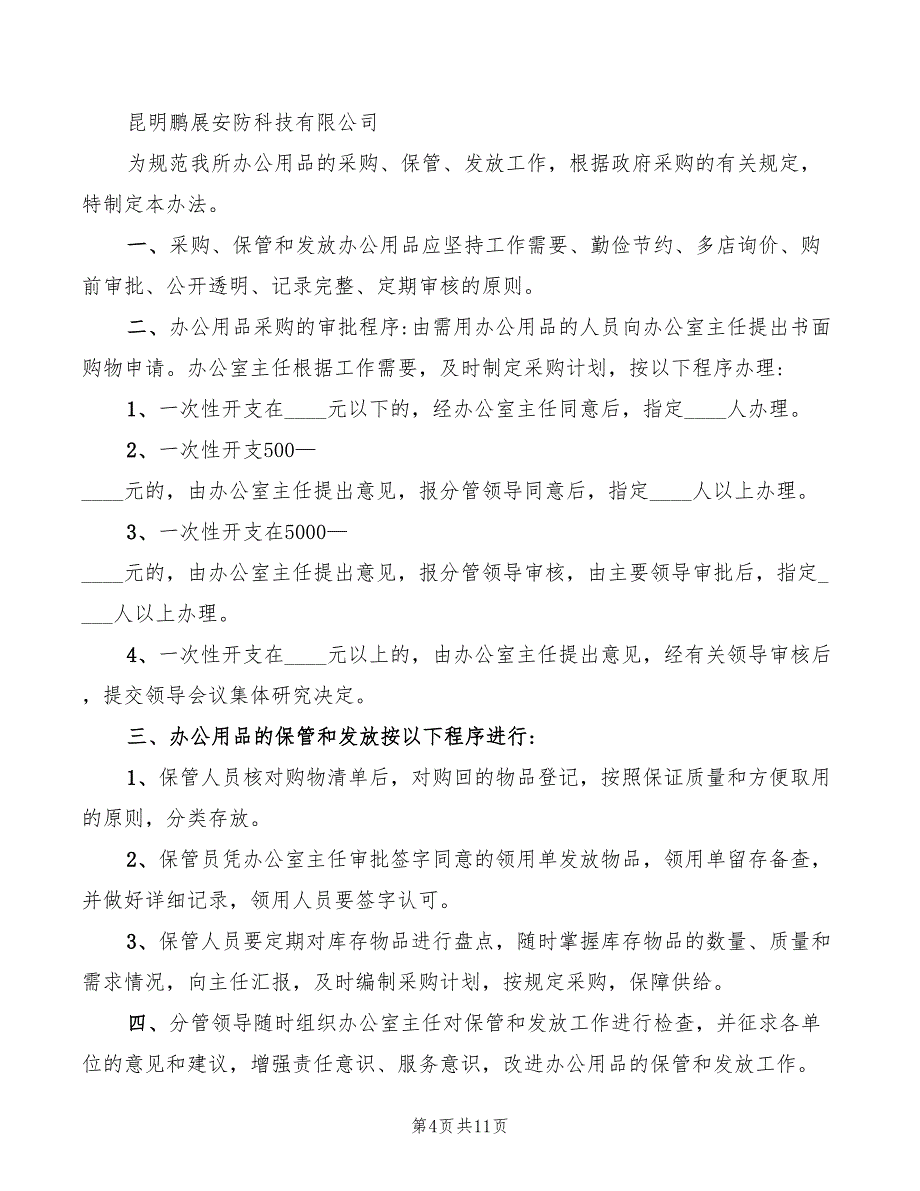 昆明鹏展安防科技有限公司
为规范我所办公用品的采购、保管、发放工作，根据政府采购的有关规定，
特制定本办法。
一、采购、保管和发放办公用品应坚持工作需要、勤俭节约、多店询价、购
前审批、公开透明、记录完整、定期审核的原则。
二、办公用品采购的审批程序:由需用办公用品的人员向办公室主任提出书面
购物申请。办公室主任根据工作需要，及时制定采购计划，按以下程序办理:
1、一次性开支在____元以下的，经办公室主任同意后，指定____人办理。
2、一次性开支500—
____元的，由办公室主任提出意见，报分管领导同意后，指定____人以上办理。
3、一次性开支在5000—
____元的，由办公室主任提出意见，报分管领导审核，由主要领导审批后，指定_
___人以上办理。
4、一次性开支在____元以上的，由办公室主任提出意见，经有关领导审核后
，提交领导会议集体研究决定。
三、办公用品的保管和发放按以下程序进行:
1、保管人员核对购物清单后，对购回的物品登记，按照保证质量和方便取用
的原则，分类存放。
2、保管员凭办公室主任审批签字同意的领用单发放物品，领用单留存备查，
并做好详细记录，领用人员要签字认可。
3、保管人员要定期对库存物品进行盘点，随时掌握库存物品的数量、质量和
需求情况，向主任汇报，及时编制采购计划，按规定采购，保障供给。
四、分管领导随时组织办公室主任对保管和发放工作进行检查，并征求各单
位的意见和建议，增强责任意识、服务意识，改进办公用品的保管和发放工作。
第4页共11页